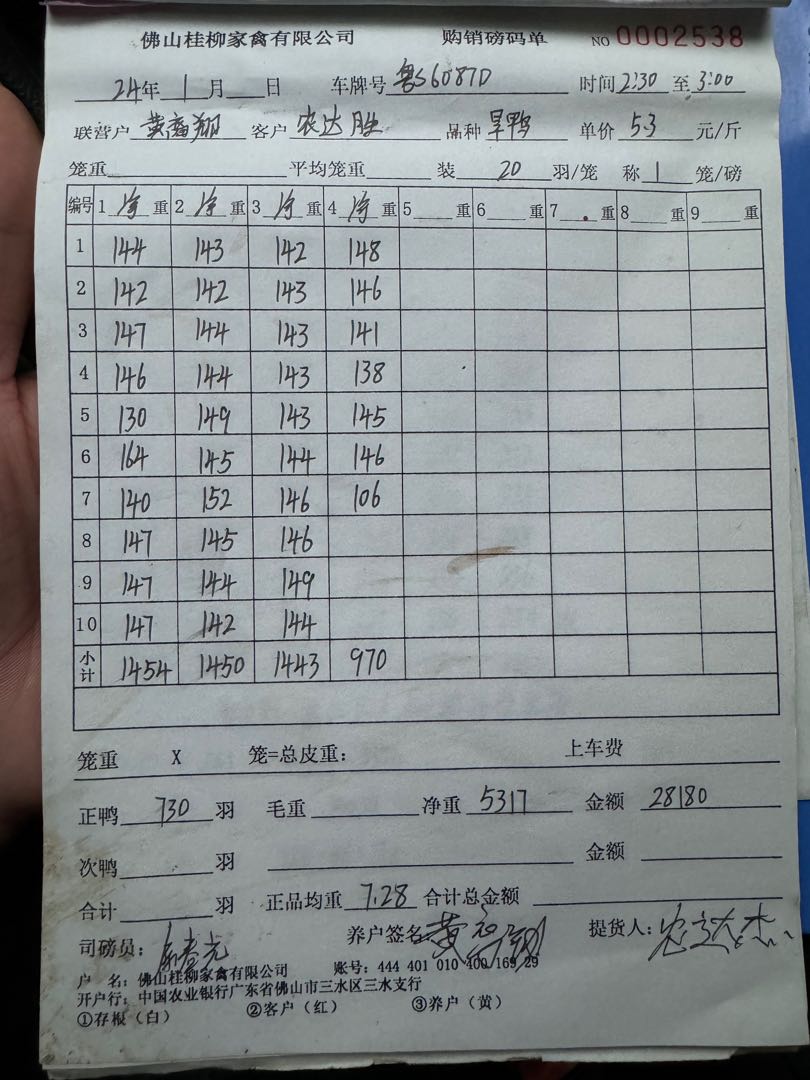 佛山桂柳家禽有限公司 购销磅码单 NO 0002538
24年 1月 日 车牌号 粤S6087D 时间 2:30 至 3:00
联营户 黄 翔 客户 农达胜 品种 旱鸭 单价 5.3 元/斤
笼重 平均笼重 装 20 羽/笼 称 1 笼/磅
编号 1 净 重 2 净 重 3 净 重 4 净 重 5 重 6 重 7 重 8 重 9 重
1 144 143 142 148
2 142 142 143 146
3 147 144 143 141
4 146 144 143 138
5 130 149 143 145
6 164 145 144 146
7 140 152 146 106
8 147 145 146
9 147 144 149
10 147 142 144
小计 1454 1450 1443 970
笼重 X 笼=总皮重: 上车费
正鸭 730 羽 毛重 净重 5317 金额 28180
次鸭 羽 金额
合计 羽 正品均重 7.28 合计总金额
司磅员: 养户签名 黄 提货人: 农
户 名: 佛山桂柳家禽有限公司 账号: 444 401 010 400 169 29
开户行: 中国农业银行广东省佛山市三水区三水支行
①存根(白) ②客户(红) ③养户(黄)